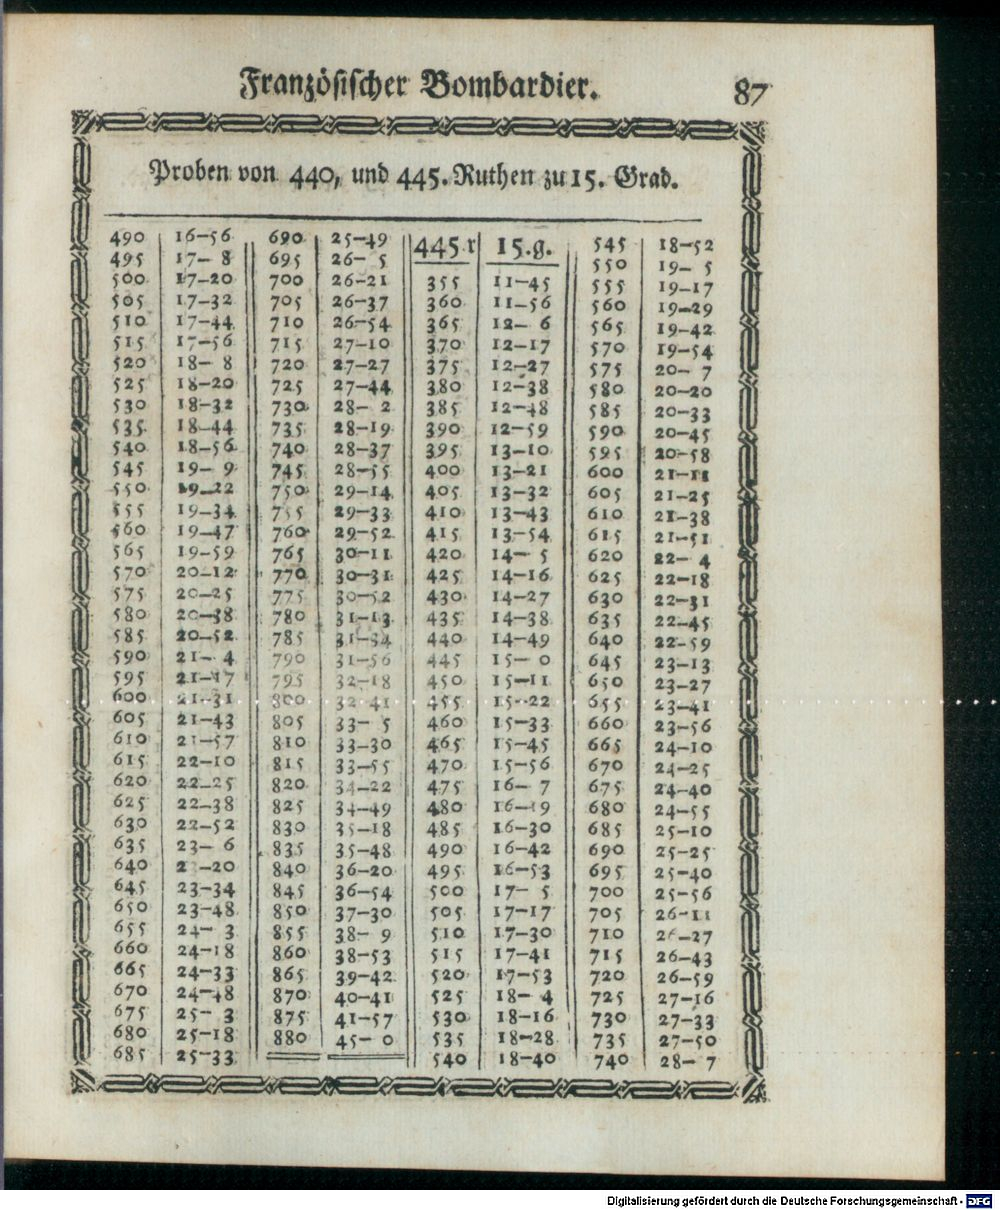 Französischer Bombardier. 87
Proben von 440, und 445. Ruthen zu 15. Grad.
490 16-56
495 17- 8
500 17-20
505 17-32
510 17-44
515 17-56
520 18- 8
525 18-20
530 18-32
535 18-44
540 18-56
545 19- 9
550 19-22
555 19-34
560 19-47
565 19-59
570 20-12
575 20-25
580 20-38
585 20-52
590 21- 4
595 21-17
600 21-31
605 21-43
610 21-57
615 22-10
620 22-25
625 22-38
630 22-52
635 23- 6
640 23-20
645 23-34
650 23-48
655 24- 3
660 24-18
665 24-33
670 24-48
675 25- 3
680 25-18
685 25-33
690 25-49
695 26- 5
700 26-21
705 26-37
710 26-54
715 27-10
720 27-27
725 27-44
730 28- 2
735 28-19
740 28-37
745 28-55
750 29-14
755 29-33
760 29-52
765 30-11
770 30-31
775 30-52
780 31-13
785 31-34
790 31-56
795 32-18
800 32-41
805 33- 5
810 33-30
815 33-55
820 34-22
825 34-49
830 35-18
835 35-48
840 36-20
845 36-54
850 37-30
855 38- 9
860 38-53
865 39-42
870 40-41
875 41-57
880 45- 0
445 r 15.g.
355 11-45
360 11-56
365 12- 6
370 12-17
375 12-27
380 12-38
385 12-48
390 12-59
395 13-10
400 13-21
405 13-32
410 13-43
415 13-54
420 14- 5
425 14-16
430 14-27
435 14-38
440 14-49
445 15- 0
450 15-11
455 15-22
460 15-33
465 15-45
470 15-56
475 16- 7
480 16-19
485 16-30
490 16-42
495 16-53
500 17- 5
505 17-17
510 17-30
515 17-41
520 17-53
525 18- 4
530 18-16
535 18-28
540 18-40
545 18-52
550 19- 5
555 19-17
560 19-29
565 19-42
570 19-54
575 20- 7
580 20-20
585 20-33
590 20-45
595 20-58
600 21-11
605 21-25
610 21-38
615 21-51
620 22- 4
625 22-18
630 22-31
635 22-45
640 22-59
645 23-13
650 23-27
655 23-41
660 23-56
665 24-10
670 24-25
675 24-40
680 24-55
685 25-10
690 25-25
695 25-40
700 25-56
705 26-11
710 26-27
715 26-43
720 26-59
725 27-16
730 27-33
735 27-50
740 28- 7
Digitalisierung gefördert durch die Deutsche Forschungsgemeinschaft - DFG